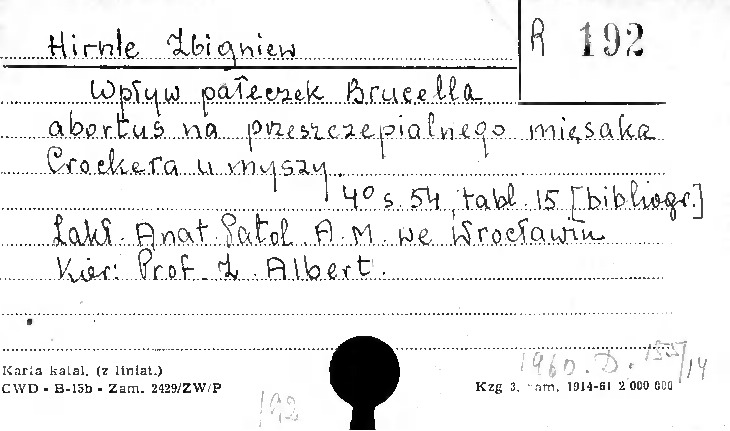 Hirnle Zbigniew
R 192
Wpływ pałeczek Brucella
abortus na przeszczepialnego mięsaka
Crockera u myszy.
4° s. 54, tabl. 15 [bibliogr.]
Zakł. Anat. Patol. A. M. we Wrocławiu
Kier: Prof. Z. Albert.
Karta katal. (z liniat.)
CWD - B-15b - Zam. 2429/ZW/P
192
1960. D. 155/14
Kzg 3, zam. 1914-61 2 000 000